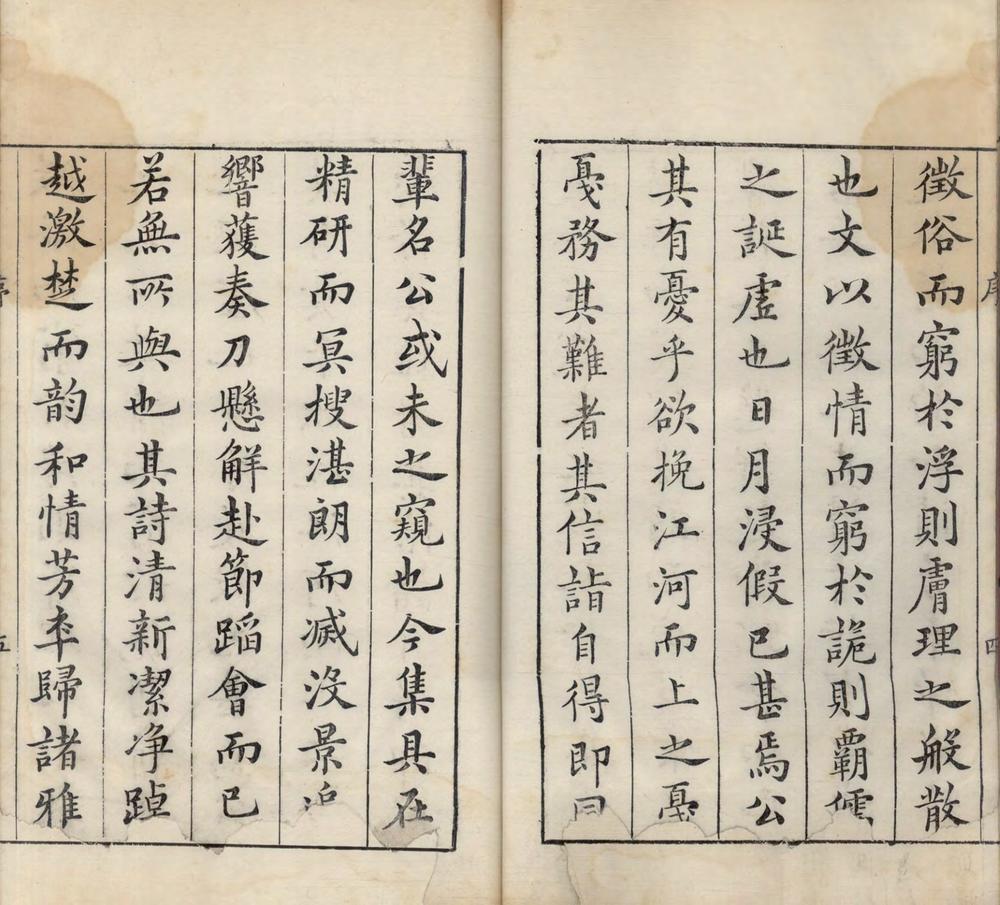 序
四
徵俗而窮於浮則膚理之般散
也文以徵情而窮於詭則覇儒
之誕虛也日月浸假已甚焉公
其有憂乎欲挽江河而上之戞
戞務其難者其信詣自得即
輩名公或未之窺也今集具在
精研而冥搜湛朗而滅沒景
響蒦奏刀懸解赴節蹈會而已
若無所與也其詩清新潔净踔
越激楚而韵和情芳率歸諸雅
序
五